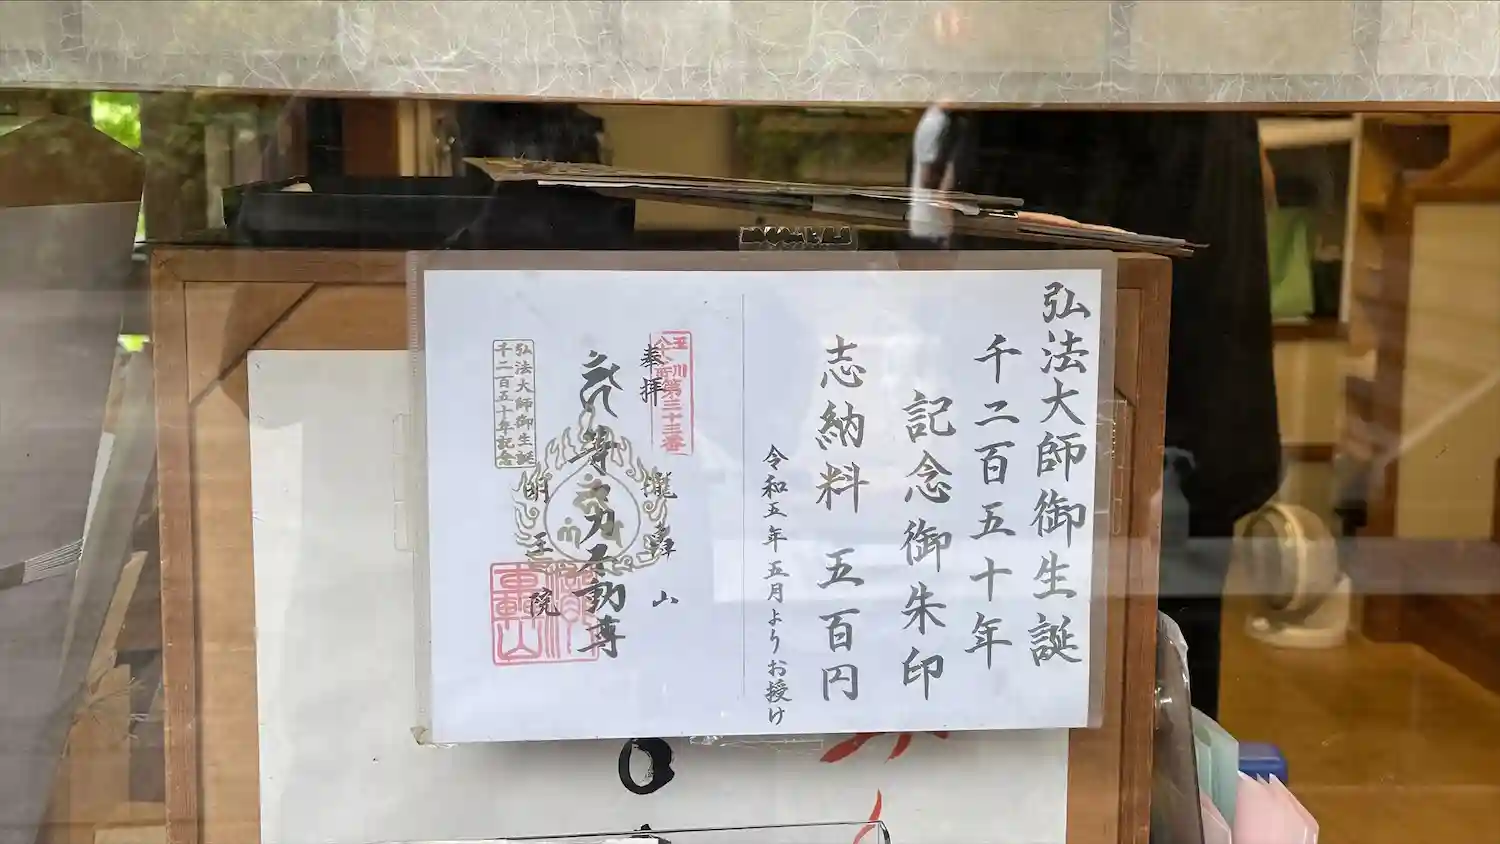 弘法大師御生誕
千二百五十年
記念御朱印
志納料 五百円
令和五年五月よりお授け
玉川
八十八ヶ所第三十三番
奉拝
瀧轟山
等々力不動尊
明王院
弘法大師御生誕
千二百五十年記念
瀧轟山